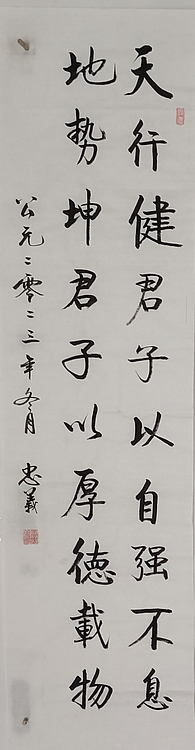 天行健君子以自强不息
地势坤君子以厚德載物
公元二零二三年冬月 忠義